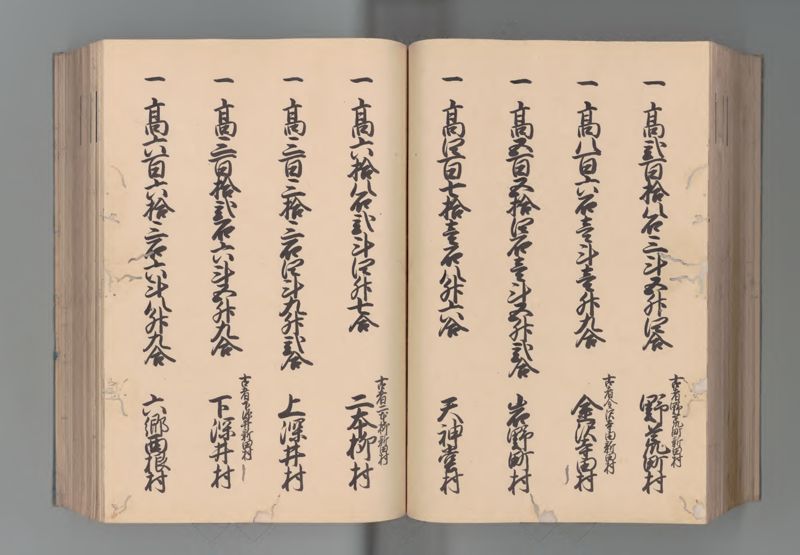 一 高弐百拾八石三斗五升四合
古者野荒町新田村
野荒町村
一 高八百六石壱斗壱升九合
古者金沢寺田新田村
金沢寺田村
一 高五百五拾四石壱斗五升弐合
岩野町村
一 高四百七拾壱石八升六合
天神堂村
一 高六拾八石弐斗四升七合
古者二本柳新田村
二本柳村
一 高三百三拾三石四斗九升弐合
上深井村
一 高三百拾弐石六斗五升九合
古者下深井新田村
下深井村
一 高六百六拾三石六斗八升九合
六郷西根村